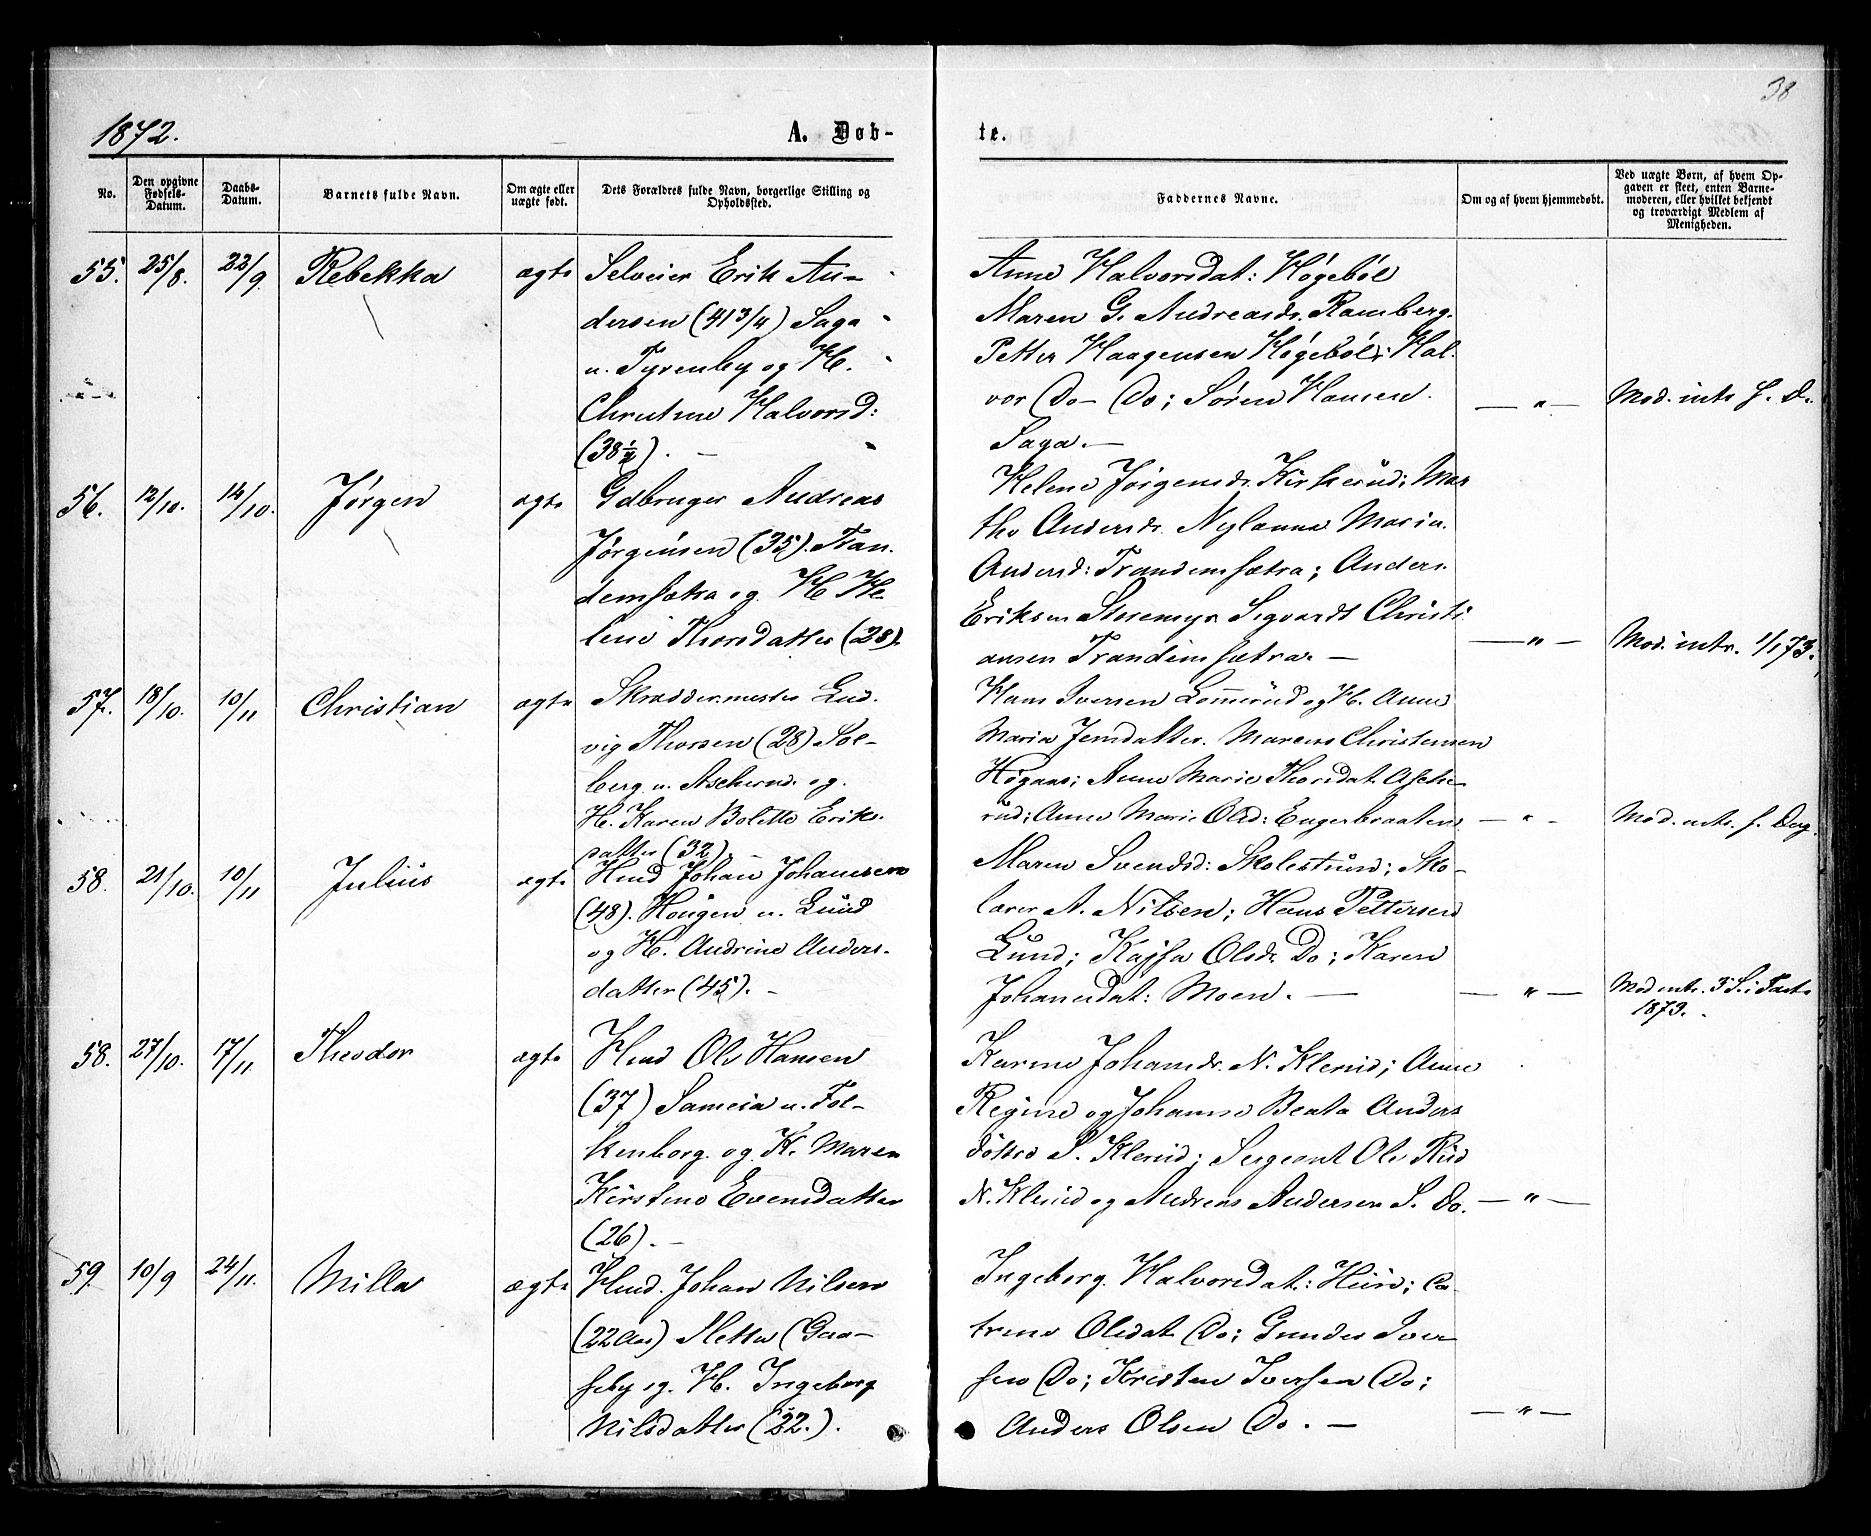 38
1872.
A. Døb-
te.
No.
Den opgivne Fødsels-Datum.
Daabs-Datum.
Barnets fulde Navn.
Om ægte eller uægte født.
Dets Forældres fulde Navn, borgerlige Stilling og Opholdssted.
Faddernes Navne.
Om og af hvem hjemmedøbt.
Ved uægte Børn, af hvem Opgaven er skeet, enten Barnemoderen, eller hvilket bekjendt og troværdigt Medlem af Menigheden.
55. 25/8. 22/9. Rebekka ægte
Selveier Erik An-
dersen (41 3/4) Saga
u. Tyrenby og H.
Christine Halvorsd:
(38 1/2). —
Anne Halvorsdat: Høgebøl
Maren G. Andreasdr. Ramberg.
Petter Haagensen Høgebøl; Hal-
vor Do - Do; Søren Hansen
Saga. —
— " —
Mod. intr. f. D.
56. 12/10. 14/10. Jørgen ægte
Gdbruger Andreas
Jørgensen (35). Tran-
demsætra og H He-
lene Thorsdatter (28).
Helene Jørgensdr. Kirkerud; Mar
the Andersdr. Nylænna Maria
Andersd: Trandemsætra; Anders
Eriksen Stosemyr Sigvardt Christi
ansen Trandemsætra. —
— " —
Mod. intr. 1/1 73.
57. 18/10. 10/11 Christian ægte
Skræddermester Lud-
vig Thorsen (28) Sol-
berg u. Ascherud og
H. Karen Bolette Eriks-
datter (32)
Hans Iversen Lommerud og H. Anne
Maria Jensdatter. Marcus Christensen
Høgaas; Anne Marie Thorsdat. Asche
rud; Anne Marie Olsd: Engerbraaten
— " —
Mod. intr. s. Dag.
58. 21/10. 10/11 Julius ægte
Hmd Johan Johansen
(48). Hougen u. Lund
og H. Andrine Anders-
datter (45). —
Maren Svendsd: Skolestund; Sko-
lærer A. Nilsen; Hans Pettersen
Lund; Kajsa Olsdr. Do; Karen
Johanesdat: Moen. —
— " —
Mod intr. 3 S. i Fast.
1873.
58. 27/10. 17/11 Theodor ægte
Hmd Ole Hansen
(37) Sameia u. Fol-
kenborg. og H. Maren
Kirstine Evensdatter
(26). —
Karine Johansdr. N. Klerud; Anne
Regine og Johanne Beata Anders
døttre S. Klerud; Sergeant Ole Rud
N. Klerud og Andreas Andersen S. Do.
— " —
59. 10/9 24/11. Milla ægte
Hmd. Johan Nilsen
(22 Aar) Sletta (Gaa-
seby og. H. Ingeborg
Nilsdatter (22.).
Ingeborg Halvorsdat: Huin; Ca-
trine Olsdat. Do; Gunder Iver
sen Do; Kristen Iversen Do;
Anders Olsen Do. —
— " —